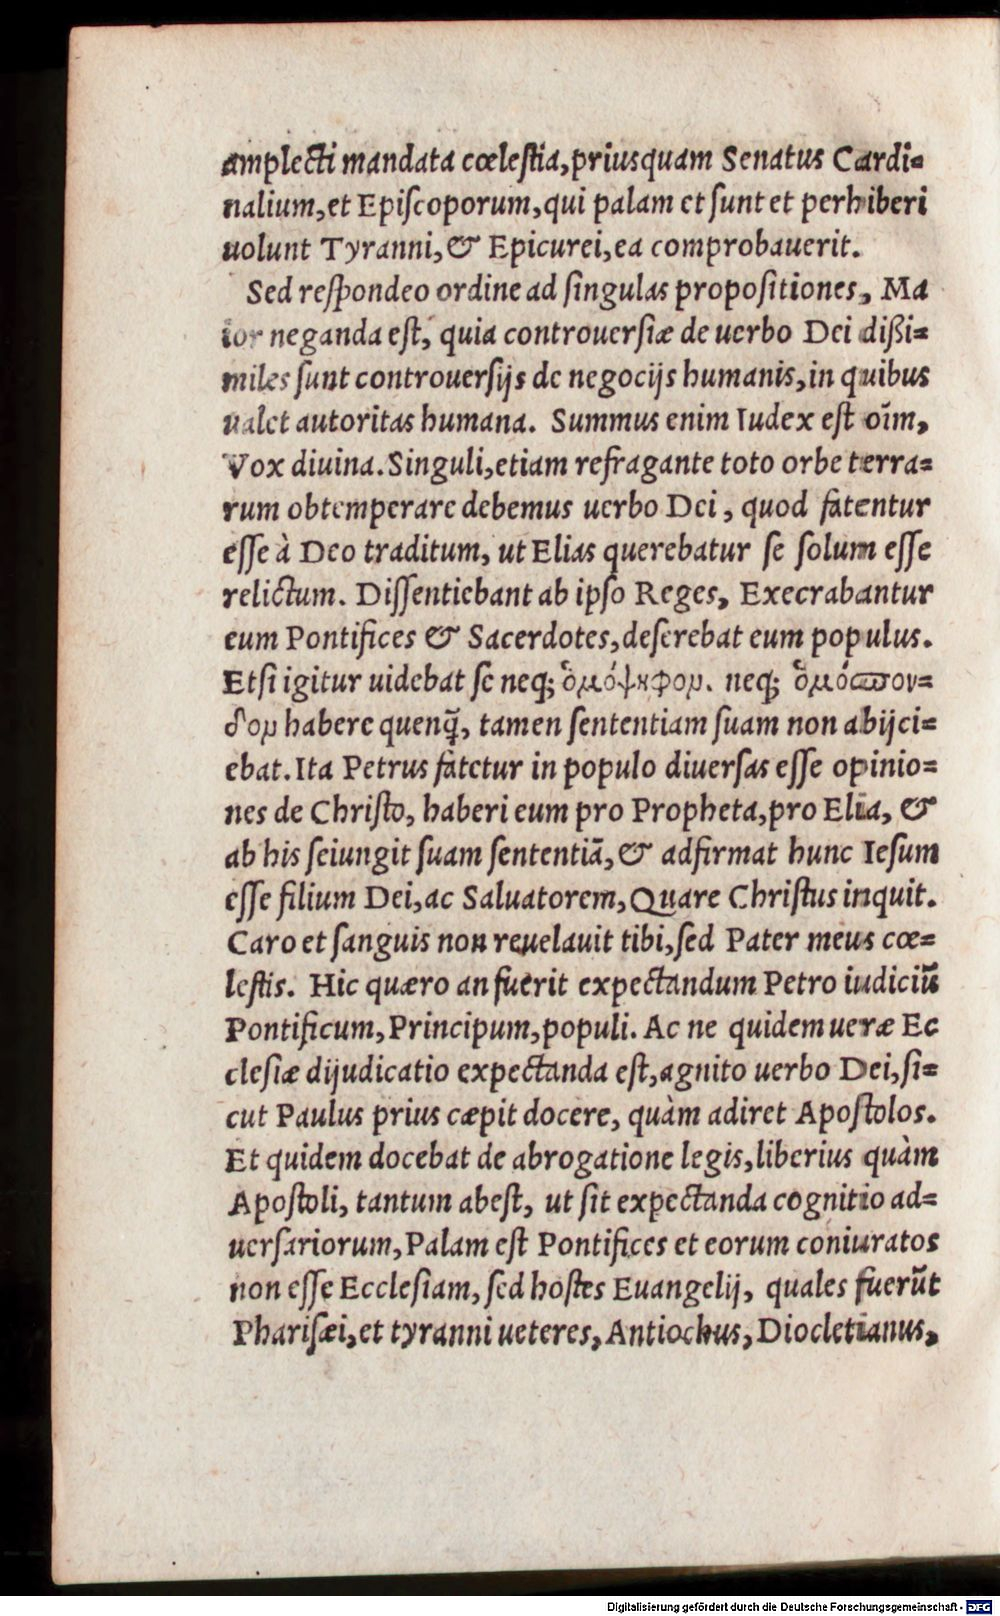 amplecti mandata cœleſtia, priusquam Senatus Cardi=
nalium, et Epiſcoporum, qui palam et ſunt et perhiberi
uolunt Tyranni, & Epicurei, ea comprobauerit.
Sed reſpondeo ordine ad ſingulas propoſitiones, Ma
ior neganda eſt, quia controuerſiæ de uerbo Dei dißi=
miles ſunt controuerſijs de negocijs humanis, in quibus
ualet autoritas humana. Summus enim Iudex eſt oīm,
Vox diuina. Singuli, etiam refragante toto orbe terra=
rum obtemperare debemus uerbo Dei, quod fatentur
eſſe à Deo traditum, ut Elias querebatur ſe ſolum eſſe
relictum. Diſſentiebant ab ipſo Reges, Execrabantur
eum Pontifices & Sacerdotes, deſerebat eum populus.
Etſi igitur uidebat ſe neq; ὁμόψηφον. neq; ὁμόσπον=
δον habere quenq̃, tamen ſententiam ſuam non abijci=
ebat. Ita Petrus fatetur in populo diuerſas eſſe opinio=
nes de Chriſto, haberi eum pro Propheta, pro Elia, &
ab his ſeiungit ſuam ſententiã, & adfirmat hunc Ieſum
eſſe filium Dei, ac Saluatorem, Quare Chriſtus inquit.
Caro et ſanguis non reuelauit tibi, ſed Pater meus cœ=
leſtis. Hic quæro an fuerit expectandum Petro iudiciũ
Pontificum, Principum, populi. Ac ne quidem ueræ Ec
cleſiæ dijudicatio expectanda eſt, agnito uerbo Dei, ſi=
cut Paulus prius cæpit docere, quàm adiret Apoſtolos.
Et quidem docebat de abrogatione legis, liberius quàm
Apoſtoli, tantum abeſt, ut ſit expectanda cognitio ad=
uerſariorum, Palam eſt Pontifices et eorum coniuratos
non eſſe Eccleſiam, ſed hoſtes Euangelij, quales fuerũt
Phariſæi, et tyranni ueteres, Antiochus, Diocletianus,
Digitalisierung gefördert durch die Deutsche Forschungsgemeinschaft - DFG